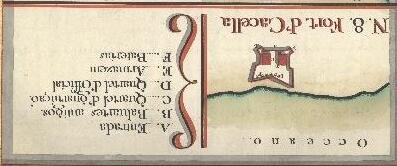 N. 8. Fort. d'Cacella
Occeano.
A. Entrada
B. Baluartes antigos.
C. Quartel d'Guarniçaõ.
D. Quartel d'Official
E. Armazem
F. Baterias